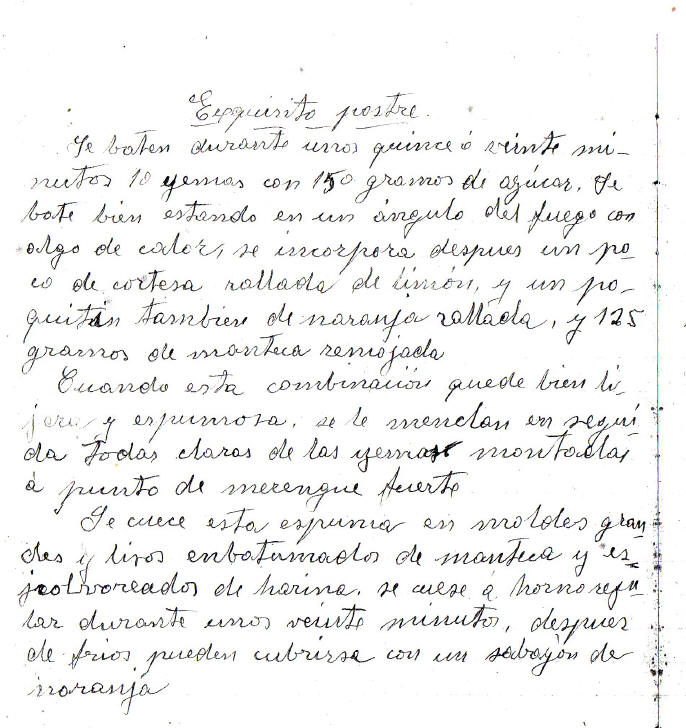 Exquisito postre.
Se baten durante unos quince ó veinte mi-
nutos 10 yemas con 150 gramos de azúcar. Se
bate bien estando en un ángulo del fuego con
algo de calor, se incorpora despues un po-
co de cortesa rallada de limón, y un po-
quitin tambien de naranja rallada, y 125
gramos de manteca remojada
Cuando esta combinación quede bien li-
jera y espumosa, se le menclan en segui-
da todas claras de las yemas montadas
á punto de merengue fuerte
Se cuece esta espuma en moldes gran-
des y lisos enbatumados de manteca y es-
polvoreados de harina, se cuese á horno regu-
lar durante unos veinte minutos, despues
de frios pueden cubrirse con un sabayón de
naranja